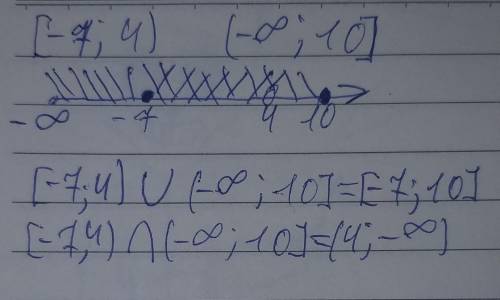 [-7; 4) (-∞; 10]
-∞ -7 4 10
[-7;4) ∪ (-∞; 10]=[-7; 10]
[-7,4) ∩ (-∞; 10]=(4; -∞)